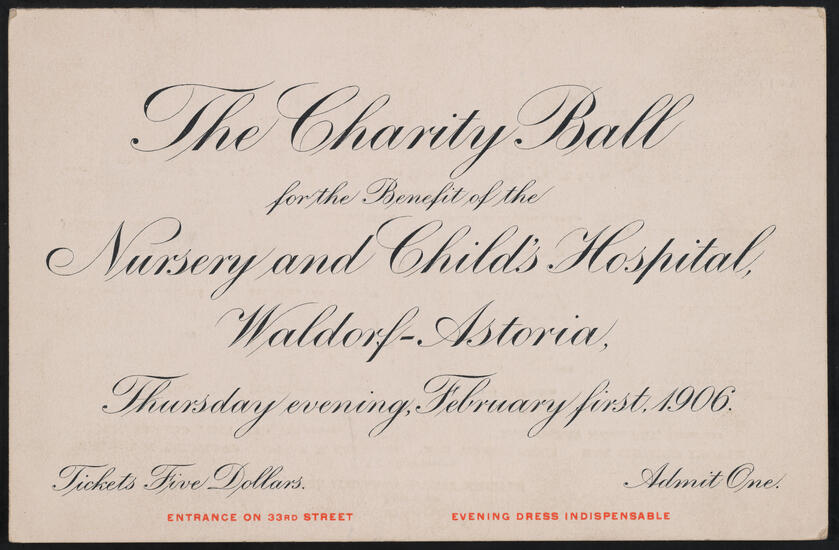 The Charity Ball
for the Benefit of the
Nursery and Child's Hospital,
Waldorf-Astoria,
Thursday evening, February first, 1906.
Tickets Five Dollars. Admit One.
ENTRANCE ON 33RD STREET EVENING DRESS INDISPENSABLE